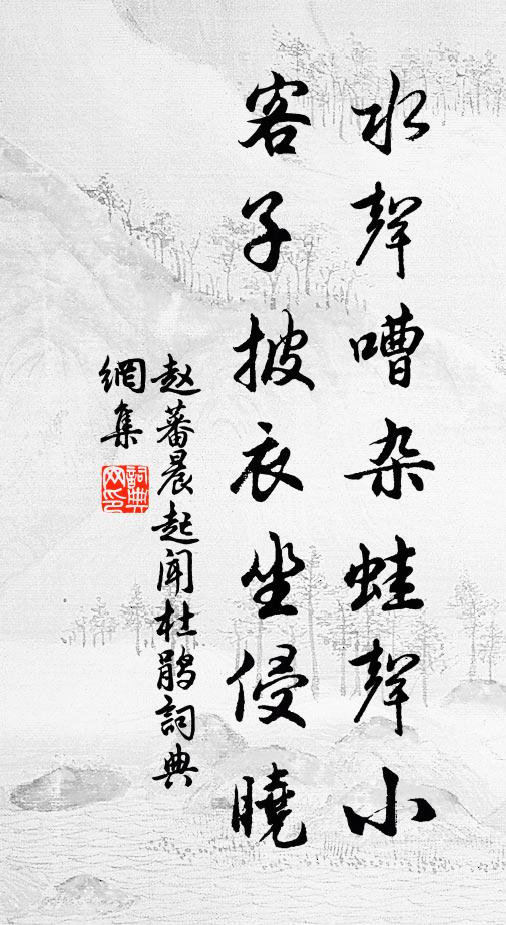 水聲嘈杂蛙聲小
客子披衣坐侵曉
赵蕃晨起闻杜鹃詞典
網集
詞典网印